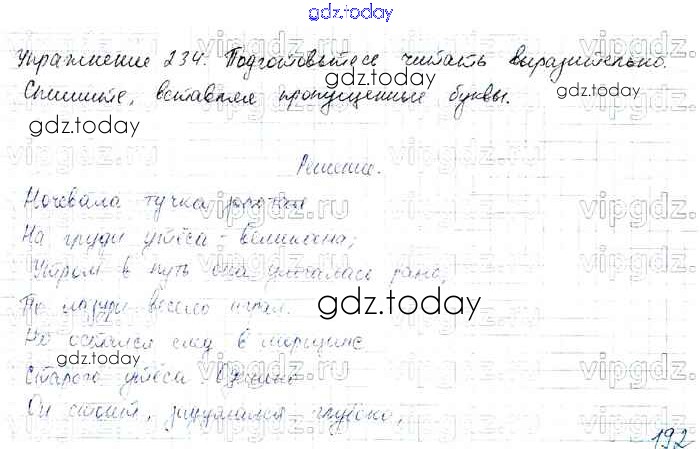 gdz.today
Упражнение 234. Подготовьтесь читать выразительно.
gdz.today
Спишите, вставляя пропущенные буквы.
gdz.today
vipgdz.ru
Решение.
Ночевала тучка золотая
На груди утёса-великана;
Утром в путь она умчалась рано,
gdz.today
По лазури весело играя.
Но остался след в морщине
gdz.today
Старого утёса. Одиноко
Он стоит, задумался глубоко,
192